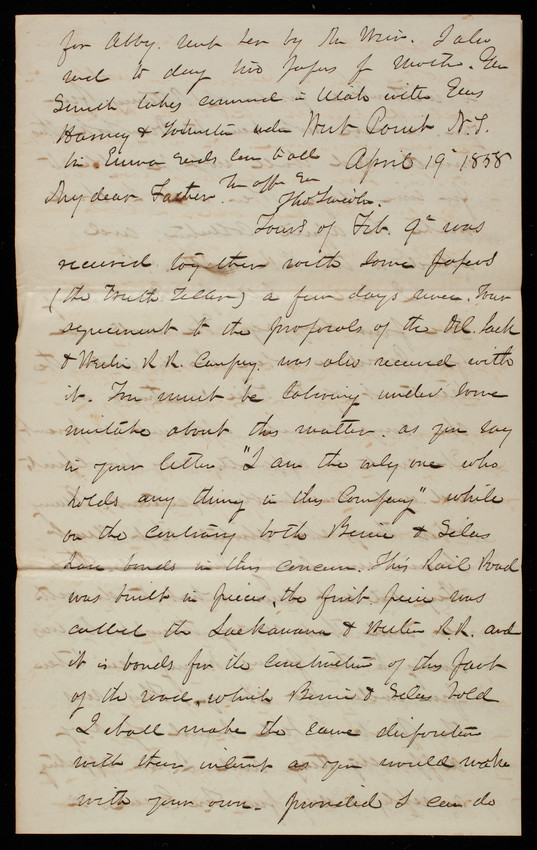 for Abby. sent her by Mr Weir. I also
send to day two papers f North. Gen
Smith takes command in Utah with Gens
Harney & Johnston under
West Point N.Y.
April 19th 1858
My dear Father
Thos Lincoln.
Yours of Feb. 9th was
received together with some papers
(the Truth Teller) a few days since. Your
agreement to the proposals of the Del. Lack
& Western R R. Company. was also received with
it. You must be laboring under some
mistake about this matter. as you say
in your letter "I am the only one who
holds any thing in this Company" while
on the contrary both Bernie & Silas
have bonds in this concern. This Rail Road
was built in pieces, the first piece was
called the Lackawana & Western RR. and
it is bonds for the construction of this part
of the road, which Bernie & Silas hold
I shall make the same disposition
with their interest as you would make
with your own. provided I can do